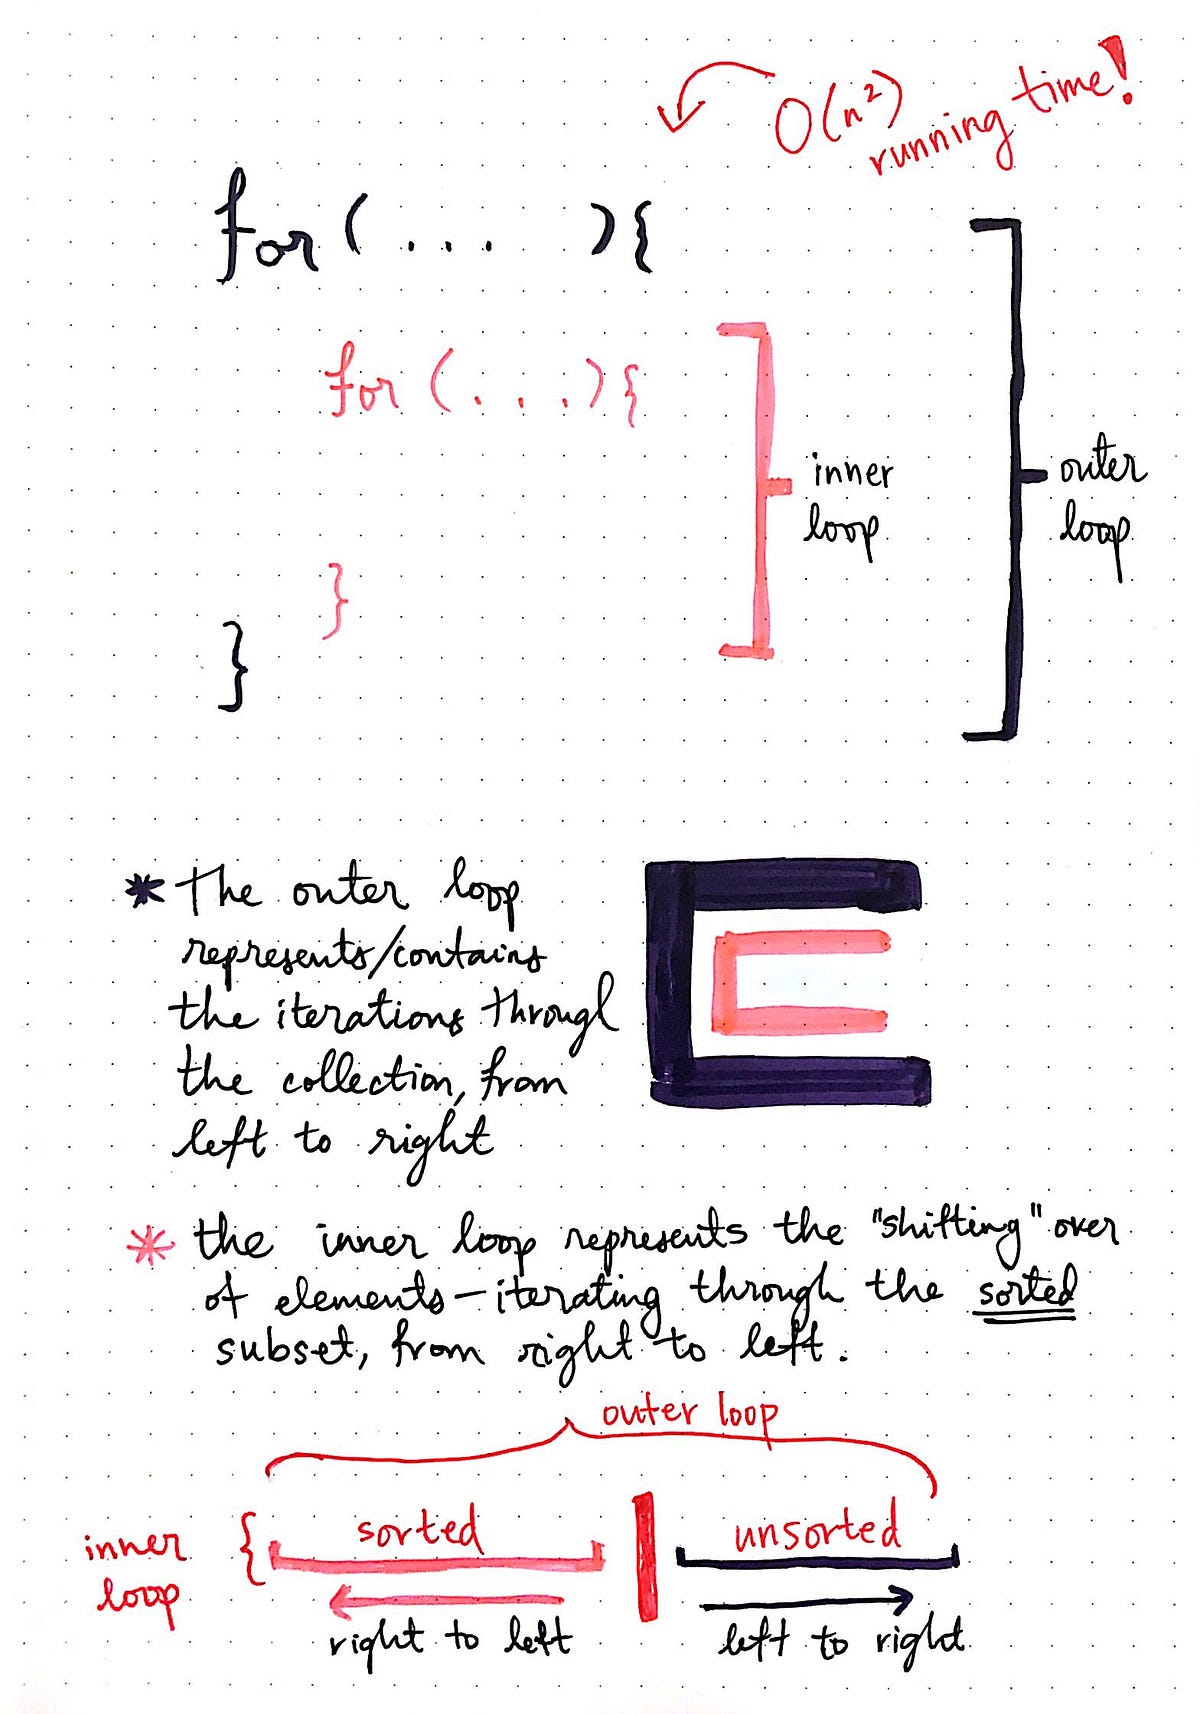 O(n²)
running time!
for (... ){
for (...){
inner
loop
outer
loop
}
}
* The outer loop
represents/contains
the iterations through
the collection, from
left to right
* the inner loop represents the "shifting" over
of elements — iterating through the sorted
subset, from right to left.
outer loop
inner
loop
{
sorted
unsorted
right to left
left to right